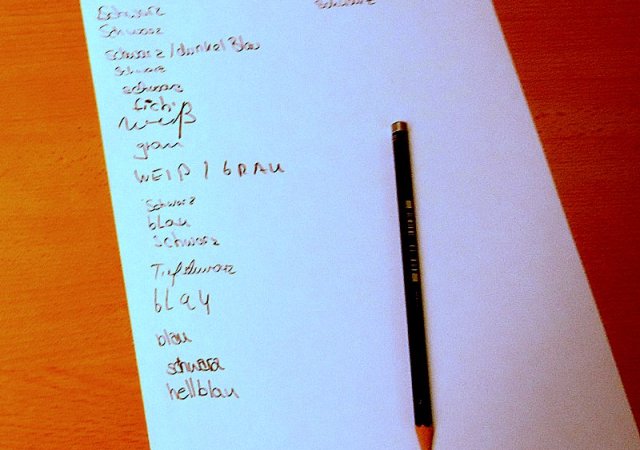 Schwarz
Schwarz
Schwarz
schwarz/dunkel Blau
Schwarz
schwarz
weiß
grau
WEIß / GRAU
Schwarz
blau
Schwarz
Tiefschwarz
blau
blau
schwarz
hellblau